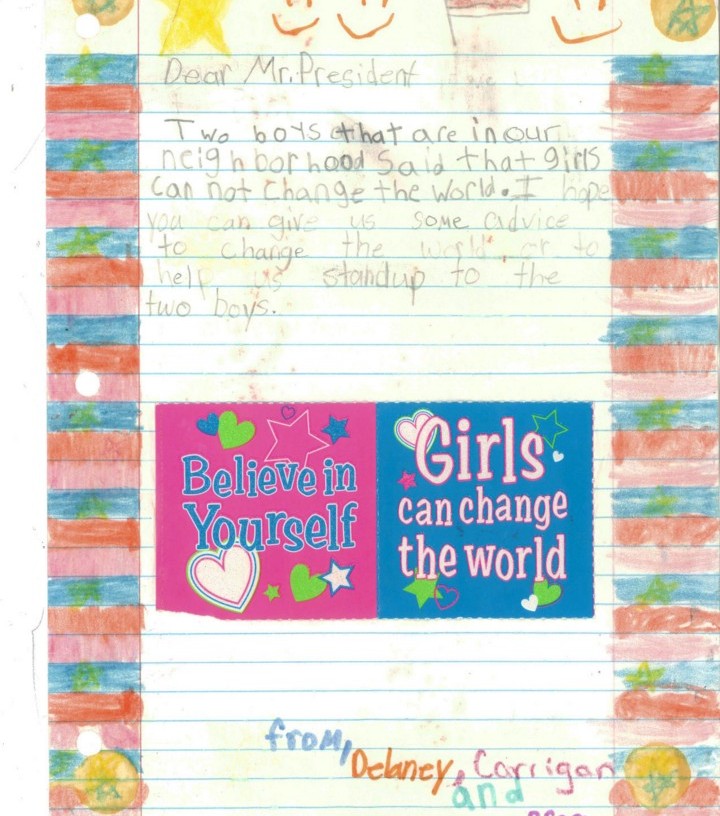 Dear Mr. President
Two boys that are in our
neighborhood said that girls
can not change the world. I hope
you can give us some advice
to change the world, or to
help us standup to the
two boys.
Believe in
Yourself
Girls
can change
the world
from,
Delaney, Carrigan
and